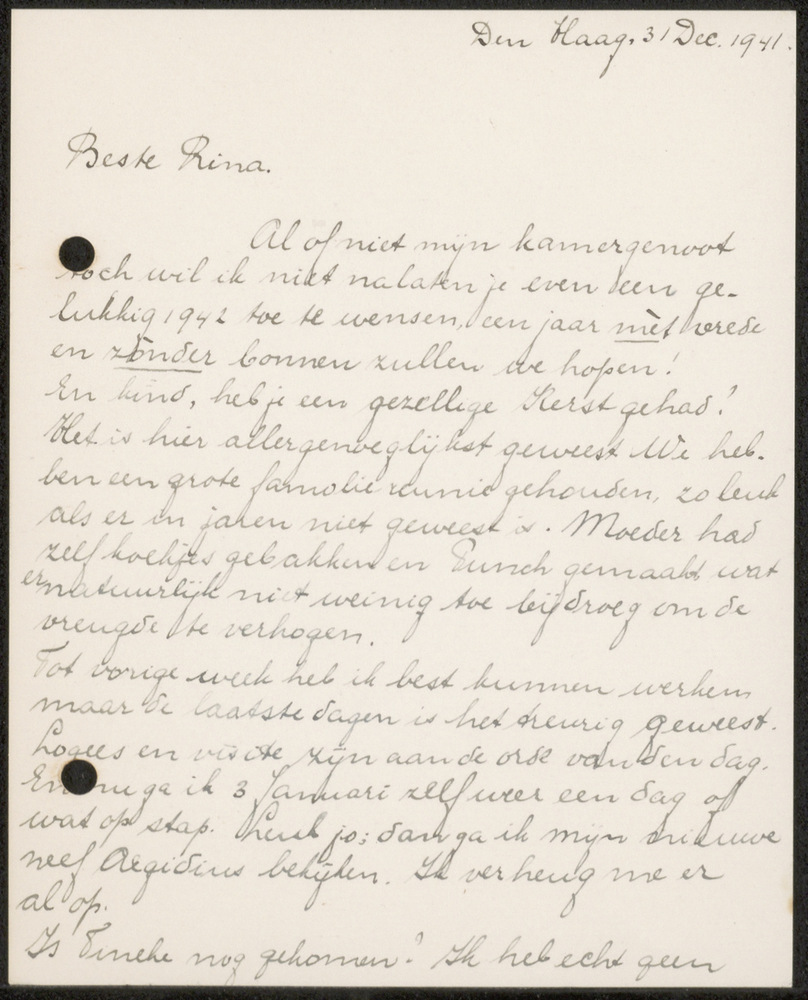 Den Haag, 31 Dec. 1941.
Beste Rina.
Al of niet mijn kamergenoot
toch wil ik niet nalaten je even een ge-
lukkig 1942 toe te wensen, een jaar mèt vrede
en zònder bonnen zullen we hopen!
En kind, heb je een gezellige Kerst gehad?
Het is hier allergenoeglijkst geweest We heb-
ben een grote familie reunie gehouden, zo leuk
als er in jaren niet geweest is. Moeder had
zelf koekjes gebakken en Punch gemaakt wat
er natuurlijk niet weinig toe bijdroeg om de
vreugde te verhogen.
Tot vorige week heb ik best kunnen werken
maar de laatste dagen is het treurig geweest.
Logees en visite zijn aan de orde van den dag.
En nu ga ik 3 Januari zelf weer een dag of
wat op stap. Leuk jo; dan ga ik mijn nieuwe
neef Aegidius bekijken. Ik verheug me er
al op.
Is Tineke nog gekomen? Ik heb echt geen